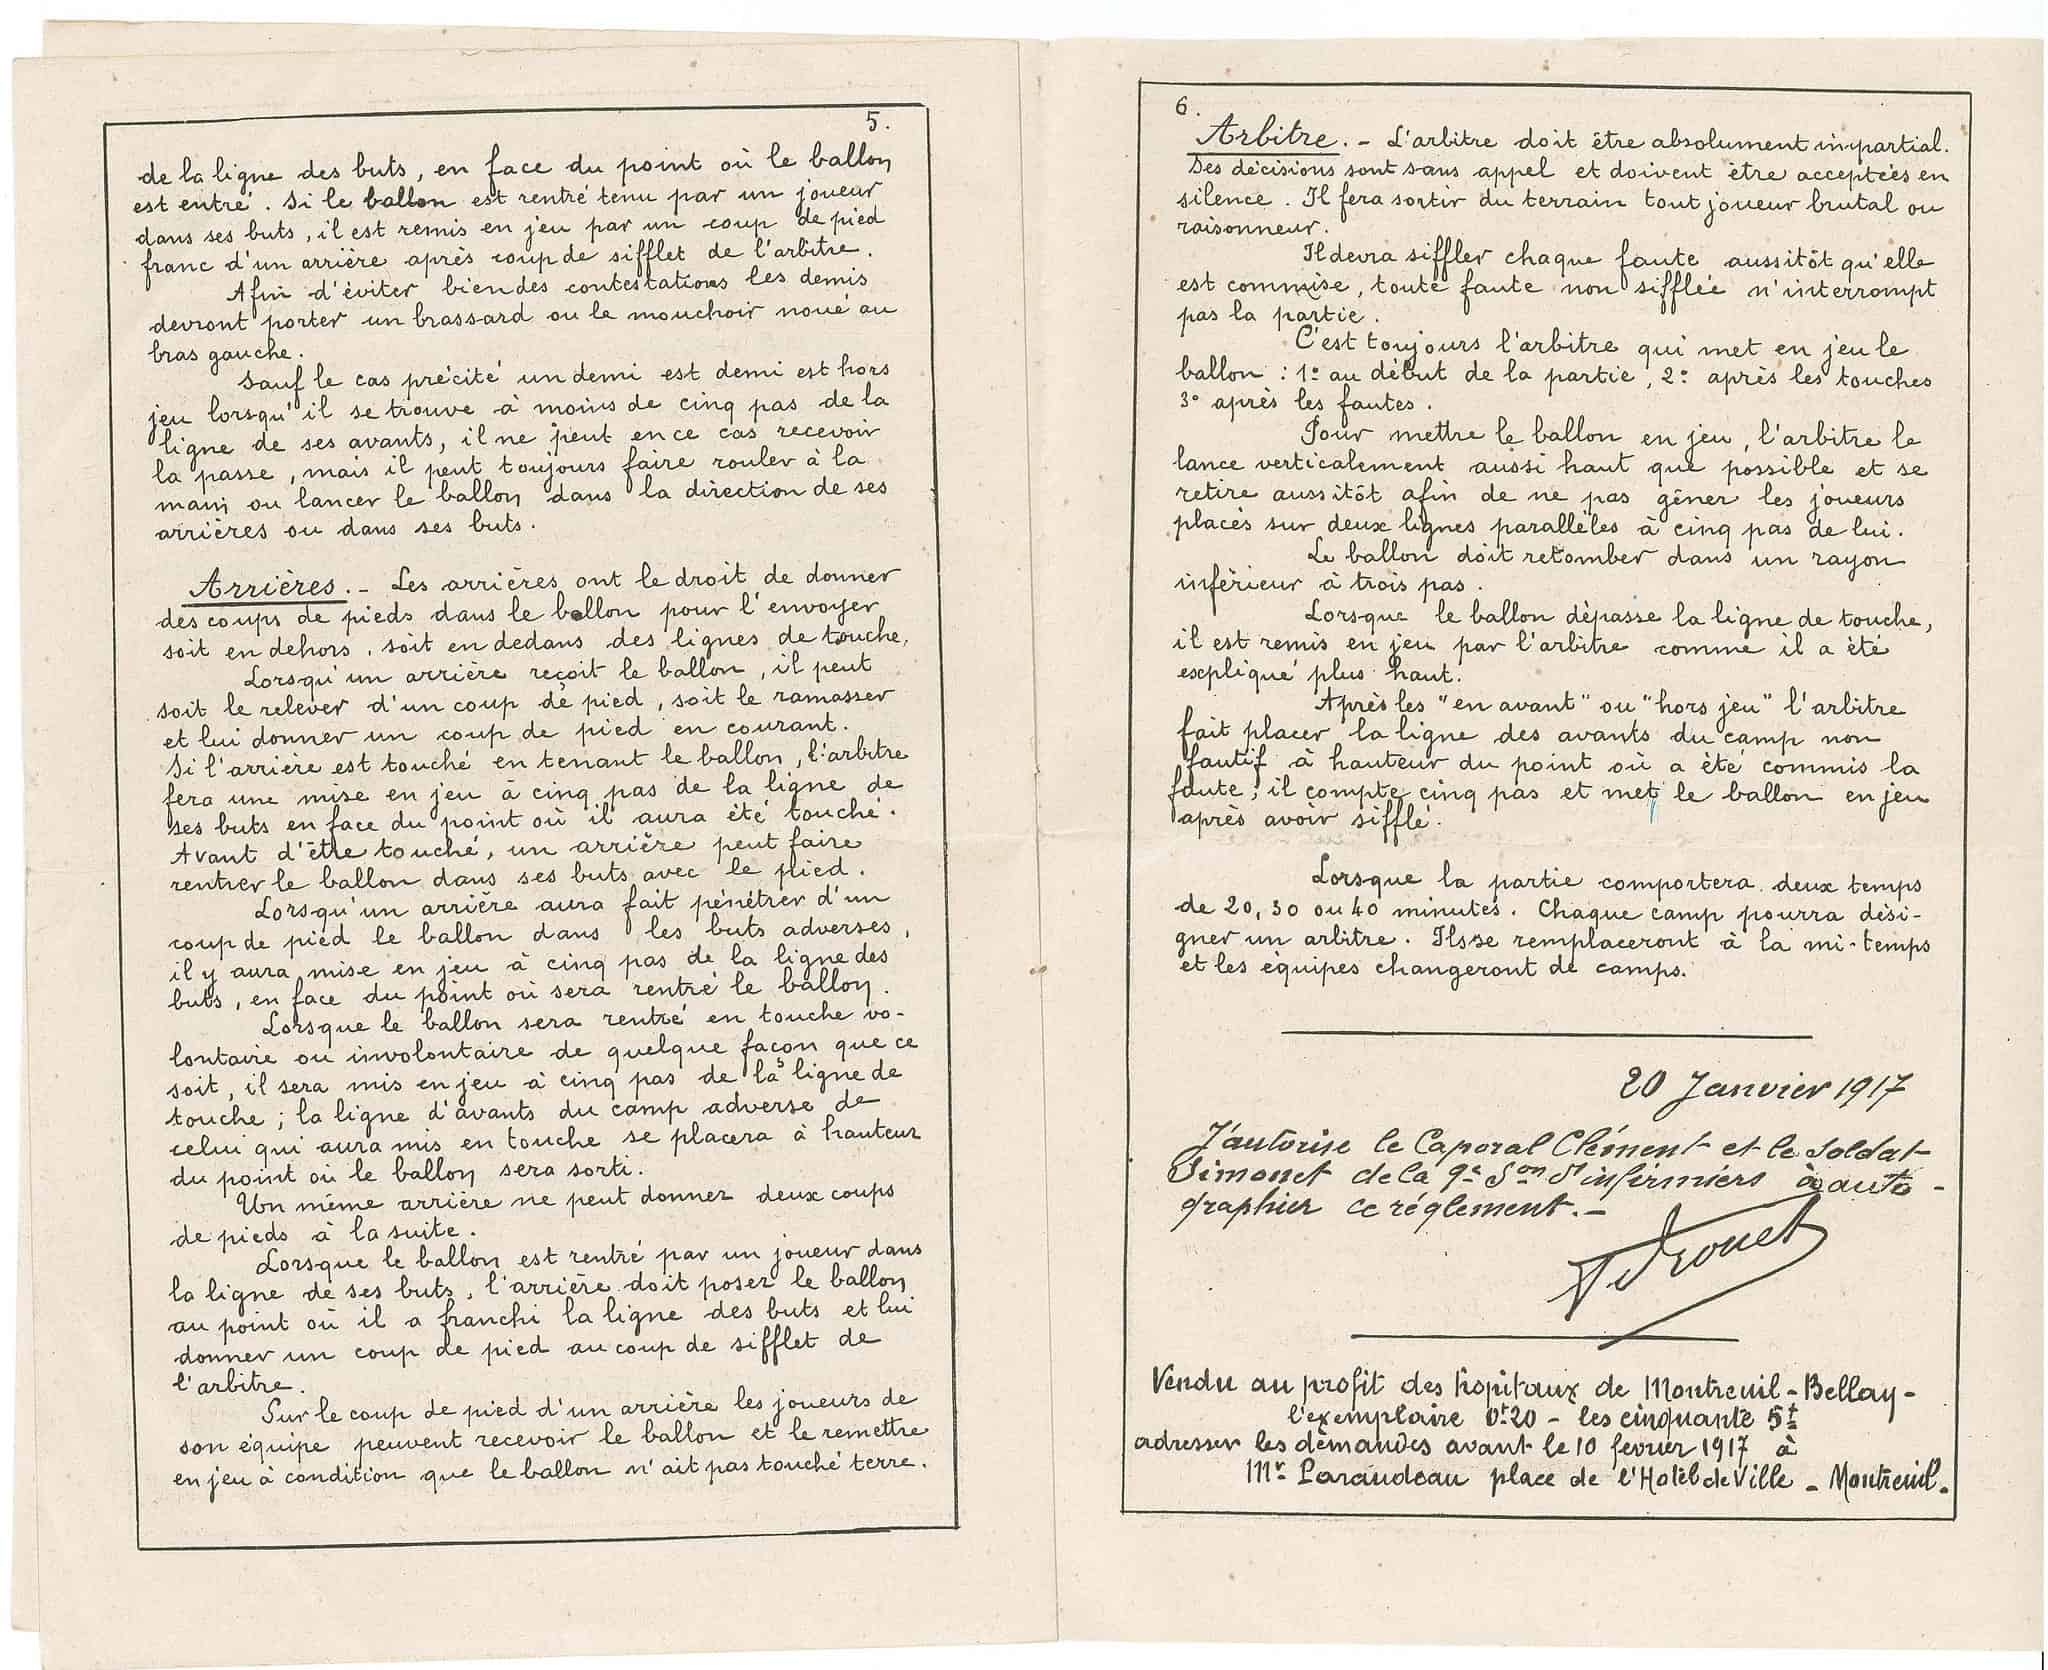 5.
de la ligne des buts, en face du point où le ballon
est entré. Si le ballon est rentré tenu par un joueur
dans ses buts, il est remis en jeu par un coup de pied
franc d'un arrière après coup de sifflet de l'arbitre.
Afin d'éviter bien des contestations les demis
devront porter un brassard ou le mouchoir noué au
bras gauche.
Sauf le cas précité un demi est demi est hors
jeu lorsqu'il se trouve à moins de cinq pas de la
ligne de ses avants, il ne peut en ce cas recevoir
la passe, mais il peut toujours faire rouler à la
main ou lancer le ballon dans la direction de ses
arrières ou dans ses buts.
Arrières. - Les arrières ont le droit de donner
des coups de pieds dans le ballon pour l'envoyer
soit en dehors, soit en dedans des lignes de touche,
Lorsqu'un arrière reçoit le ballon, il peut
soit le relever d'un coup de pied, soit le ramasser
et lui donner un coup de pied en courant.
Si l'arrière est touché en tenant le ballon, l'arbitre
fera une mise en jeu à cinq pas de la ligne de
ses buts en face du point où il aura été touché.
Avant d'être touché, un arrière peut faire
rentrer le ballon dans ses buts avec le pied.
Lorsqu'un arrière aura fait pénétrer d'un
coup de pied le ballon dans les buts adverses,
il y aura mise en jeu à cinq pas de la ligne des
buts, en face du point où sera rentré le ballon.
Lorsque le ballon sera rentré en touche vo-
lontaire ou involontaire de quelque façon que ce
soit, il sera mis en jeu à cinq pas de la ligne de
touche; la ligne d'avants du camp adverse de
celui qui aura mis en touche se placera à hauteur
du point où le ballon sera sorti.
Un même arrière ne peut donner deux coups
de pieds à la suite.
Lorsque le ballon est rentré par un joueur dans
la ligne de ses buts, l'arrière doit poser le ballon
au point où il a franchi la ligne des buts et lui
donner un coup de pied au coup de sifflet de
l'arbitre.
Sur le coup de pied d'un arrière les joueurs de
son équipe peuvent recevoir le ballon et le remettre
en jeu à condition que le ballon n'ait pas touché terre.
6.
Arbitre. - L'arbitre doit être absolument impartial.
Ses décisions sont sans appel et doivent être acceptées en
silence. Il fera sortir du terrain tout joueur brutal ou
raisonneur.
Il devra siffler chaque faute aussitôt qu'elle
est commise, toute faute non sifflée n'interrompt
pas la partie.
C'est toujours l'arbitre qui met en jeu le
ballon : 1º au début de la partie, 2º après les touches
3º après les fautes.
Pour mettre le ballon en jeu, l'arbitre le
lance verticalement aussi haut que possible et se
retire aussitôt afin de ne pas gêner les joueurs
placés sur deux lignes parallèles à cinq pas de lui.
Le ballon doit retomber dans un rayon
inférieur à trois pas.
Lorsque le ballon dépasse la ligne de touche,
il est remis en jeu par l'arbitre comme il a été
expliqué plus haut.
Après les "en avant" ou "hors jeu" l'arbitre
fait placer la ligne des avants du camp non
fautif à hauteur du point où a été commis la
faute; il compte cinq pas et met le ballon en jeu
après avoir sifflé.
Lorsque la partie comportera deux temps
de 20, 30 ou 40 minutes. Chaque camp pourra dési-
gner un arbitre. Ils se remplaceront à la mi-temps
et les équipes changeront de camps.
20 Janvier 1917
J'autorise le Caporal Clément et le soldat
Simonet de la 9e Son d'infirmiers à auto-
graphier ce réglement. -
Drouet
Vendu au profit des hopitaux de Montreuil-Bellay -
l'exemplaire 0f20 - les cinquante 5f
adresser les demandes avant le 10 fevrier 1917 à
Mr Paraudeau place de l'Hotel de Ville - Montreuil.